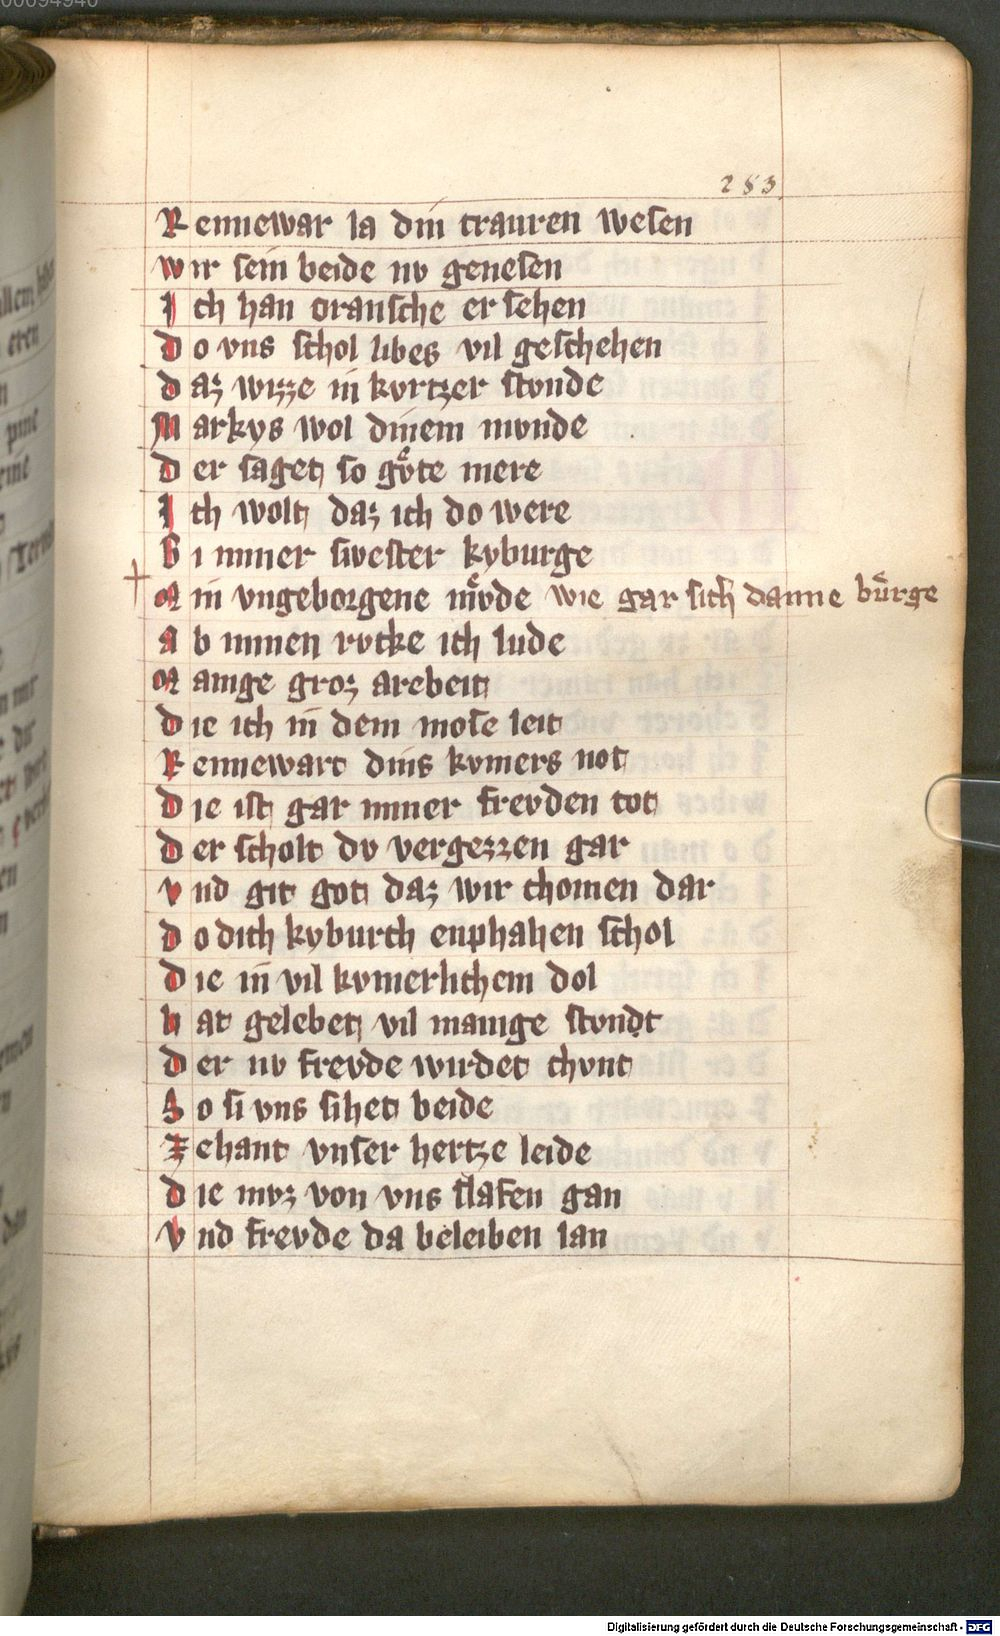 00094940
283
Rennewar la din trauren wesen
wir sein beide nv genesen
Ich han oransche er sehen
do vns schol libes vil geschehen
daz wizze in kvrtzer stvnde
Markys wol dinem mvnde
der saget so gvͦte mere
Ich wolt daz ich do were
Bi miner swester kyburge
Min vngeborgene mvͤde wie gar sich danne bu̇rge
ab minen rvcke ich lude
Manige groz arebeit
die ich in dem mose leit
Rennewart dins kvmers not
die ist gar miner frevden tot
der scholt dv vergezzen gar
vnd git got daz wir chomen dar
do dich kyburch enphahen schol
die in vil kvmerlichem dol
hat gelebet vil manige stvndt
der nv frevde wirdet chvnt
So si vns sihet beide
Zehant vnser hertze leide
die mvz von vns slafen gan
vnd frevde da beleiben lan
Digitalisierung gefördert durch die Deutsche Forschungsgemeinschaft - DFG